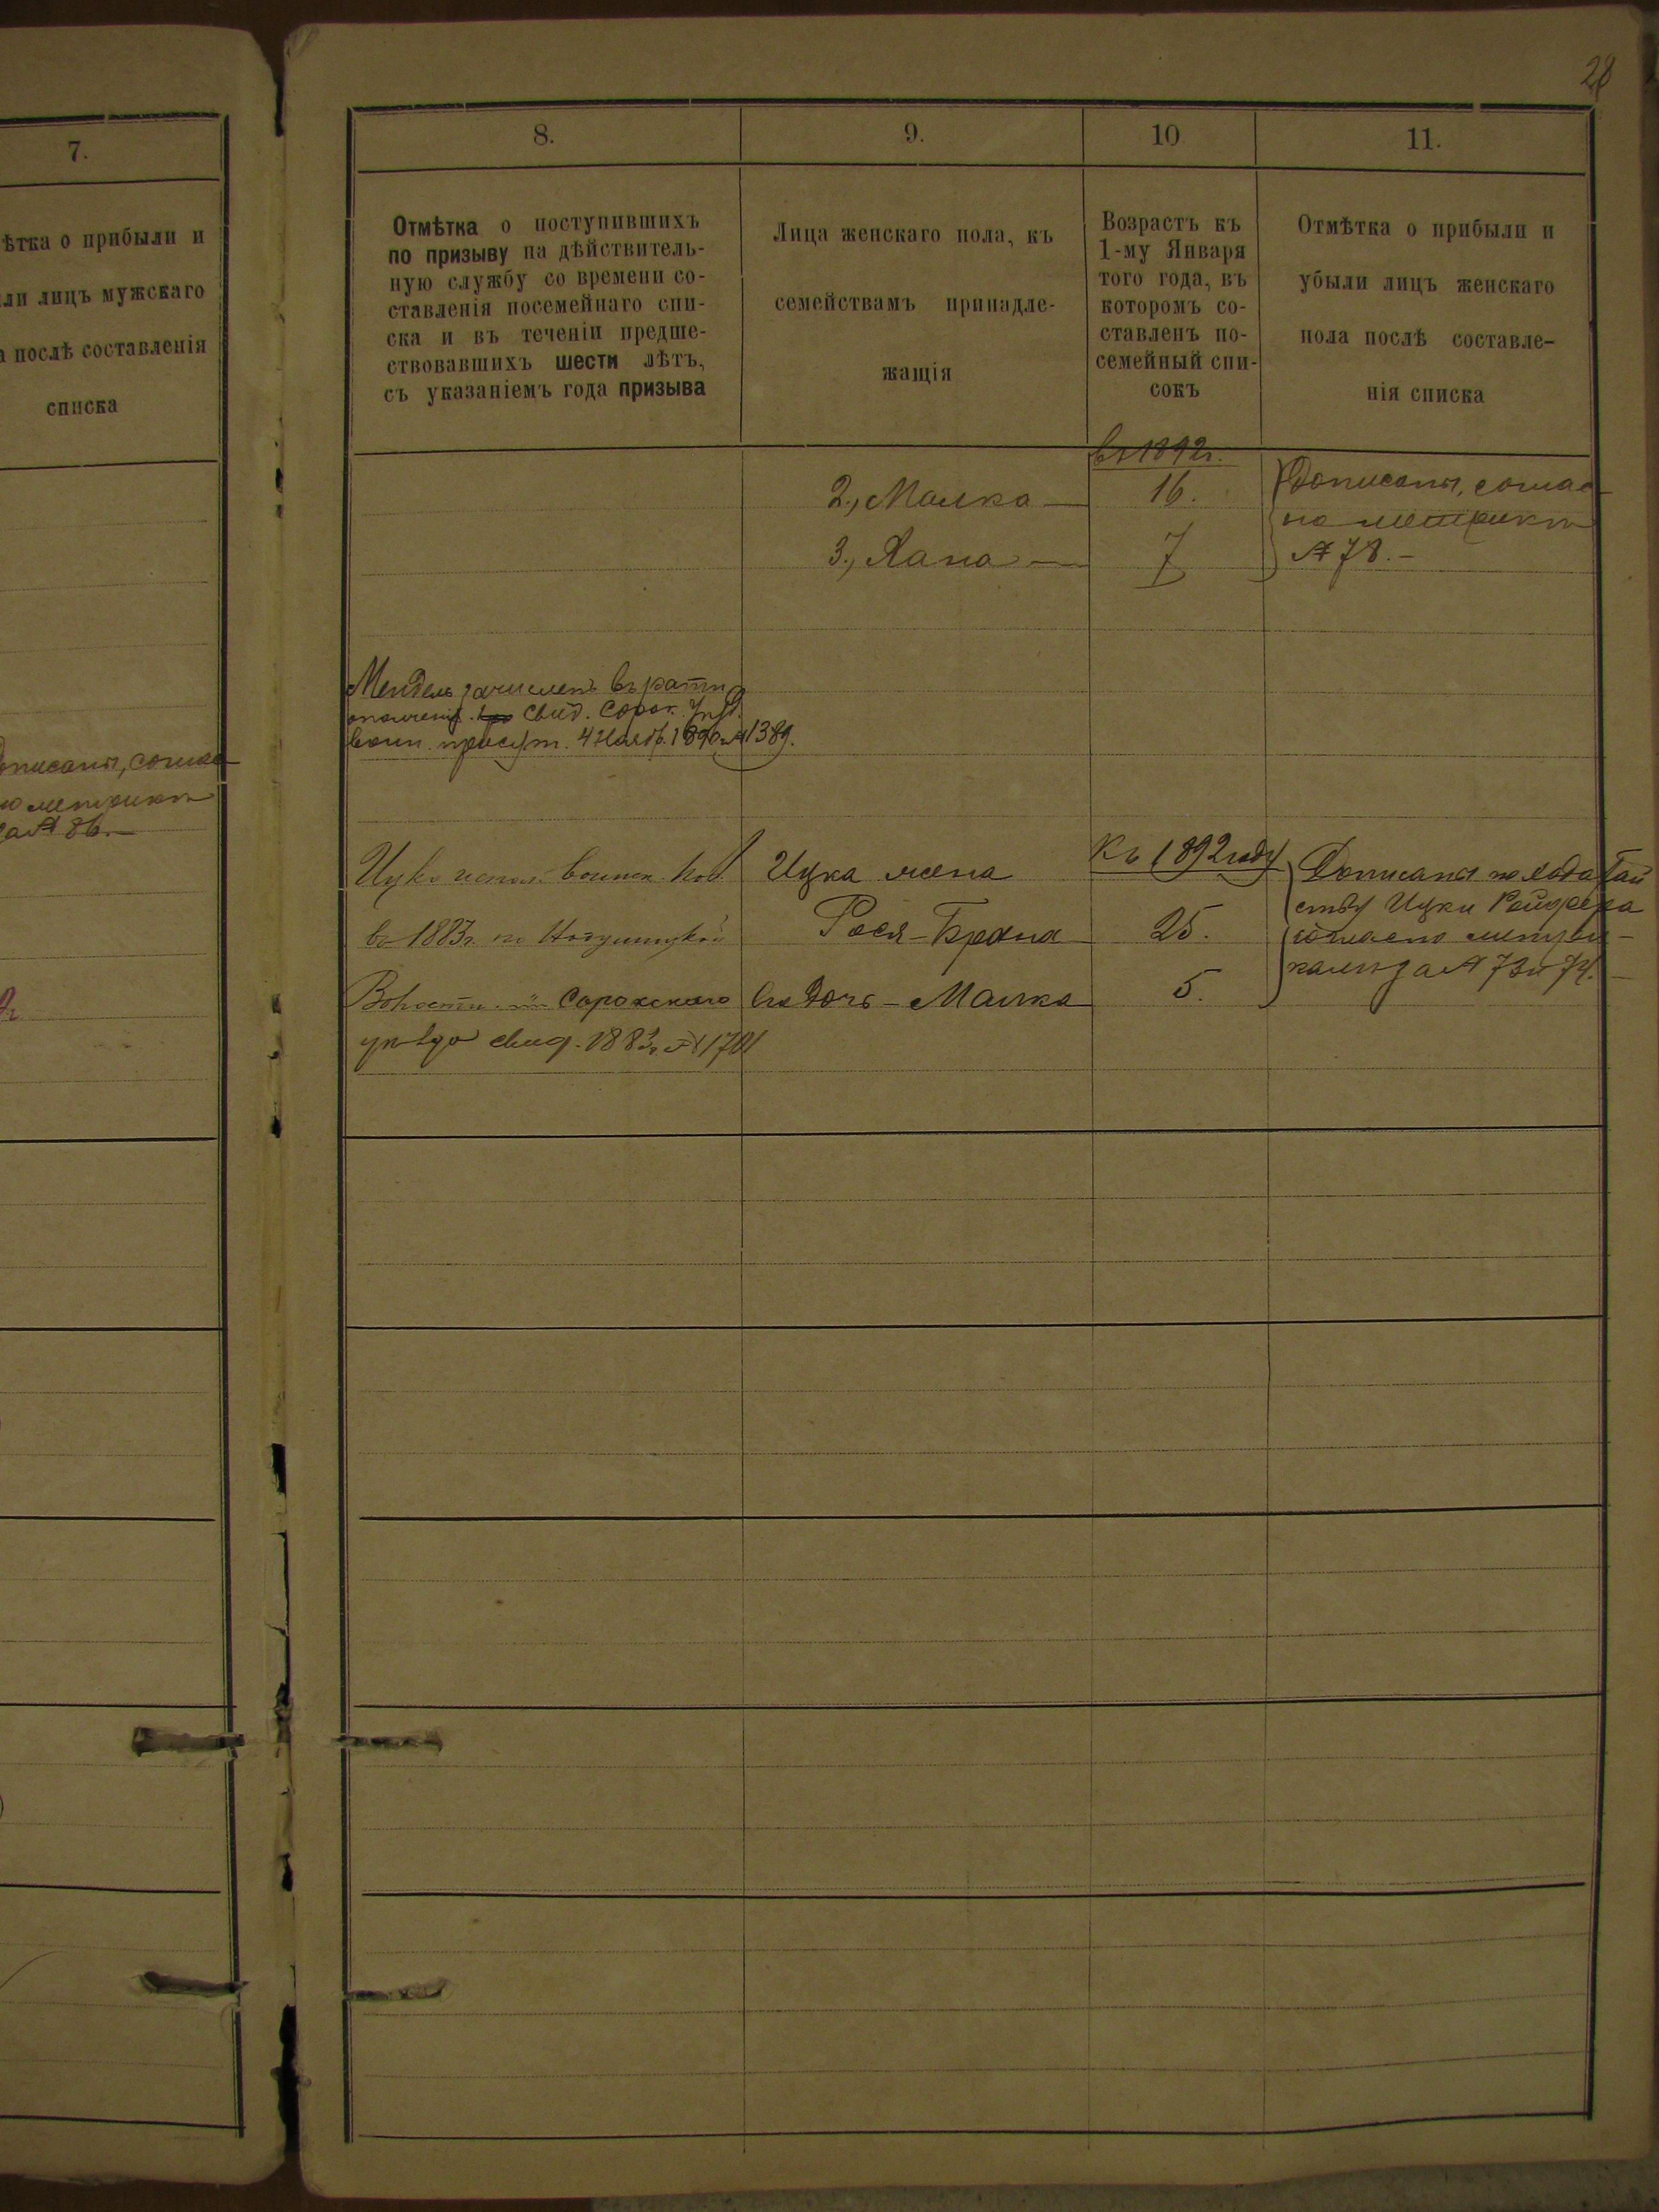 7.
ѣтка о прибыли и
ли лицъ мужскаго
послѣ составленія
списка
описаны, соглас-
но метрики
за № 86.—
28
8.
9.
10
11.
Отмѣтка о поступившихъ
по призыву на дѣйствитель-
ную службу со времени со-
ставленія посемейнаго спи-
ска и въ теченіи предше-
ствовавшихъ шести лѣтъ,
съ указаніемъ года призыва
Лица женскаго пола, къ
семействамъ принадле-
жащія
Возрастъ къ
1-му Января
того года, въ
которомъ со-
ставленъ по-
семейный спи-
сокъ
Отмѣтка о прибыли и
убыли лицъ женскаго
пола послѣ составле-
нія списка
въ 1892г.
2., Малка — 16.
3., Хана — 7
Дописаны, соглас-
но метрики
№ 78.—
Мендель зачисленъ въ ратн.
ополченія. свид. Сорок. Уѣзд.
воин. присут. 4 Нояб. 1890 № 1389.
Ицко испол. воинск. пов.
въ 1883г. по
Волости Сорокскаго
уѣзда свид. 1883г. № 1701
Ицка жена
Рося-Брана
его дочь — Малка
Къ 1892 году
25.
5.
Дописаны по ходатай
ству Ицки Ройзера
согласно метри-
камъ за № 73 и 74.—